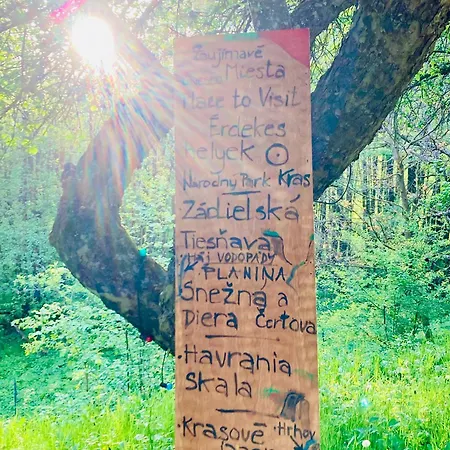 Zaujímavé
Miesta
Place to Visit
Érdekes
helyek
Narodny Park Kras
Zádielská
Tiesňava
Háj VODOPÁDY
PLANINA
Snežná a
Diera Čertova
Havrania
skala
Krasové Hrhov